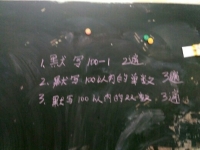 1. 默写 100-1 2遍
2. 默写 100以内的单数 3遍
3. 默写 100以内的双数, 3遍